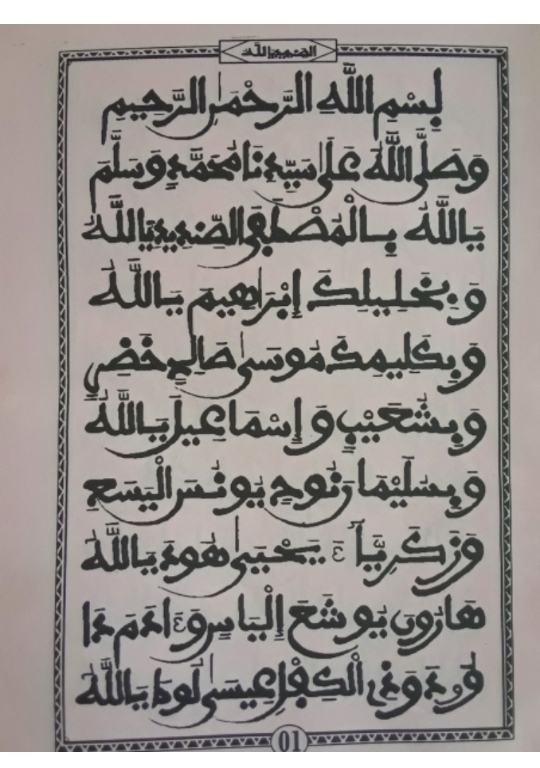 الصِّنْدِيدِ يَا اللَّهُ
بِسْمِ اللَّهِ الرَّحْمَٰنِ الرَّحِيمِ
وَصَلَّى اللَّهُ عَلَىٰ سَيِّدِنَا مُحَمَّدٍ وَسَلَّمَ
يَا اللَّهُ بِالْمُصْطَفَى الصِّنْدِيدِ يَا اللَّهُ
وَبِخَلِيلِكَ إِبْرَاهِيمَ يَا اللَّهُ
وَبِكَلِيمِكَ مُوسَىٰ صَالِحٍ خَضِرٍ
وَبِشُعَيْبٍ وَإِسْمَاعِيلَ يَا اللَّهُ
وَبِسُلَيْمَانَ نُوحٍ يُونُسَ الْيَسَعِ
وَزَكَرِيَّآءَ يَحْيَىٰ هُودَ يَا اللَّهُ
هَارُونَ يُوشَعَ إِلْيَاسٍ وَءَادَمَ دَا
وُودَ وَذِي الْكِفْلِ عِيسَىٰ لُوطَ يَا اللَّهُ
01